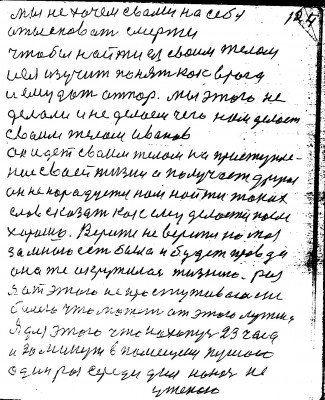 мы не хочем свами на себя
отысковат смерти
чтобы найти ея своим телом
ией изучит понят как врага
и ему дат отпор. мы этого не
делали и не делаем чего нам делает
своим телом иванов
он идет своим телом на приступле-
ное своей жизни а получает друг
он не порадуется нам найти таких
слов сказат как ему делается
хорошо. Верите не верите но
за мною ест была и будет правда
она же окружилась жизнию. раз
я от этого не простуживался не
болею что может от этого лутше
Я для этого что нахожуся 23 часа
и 30 минут в помещении
один раз среди дня не
ужинаю